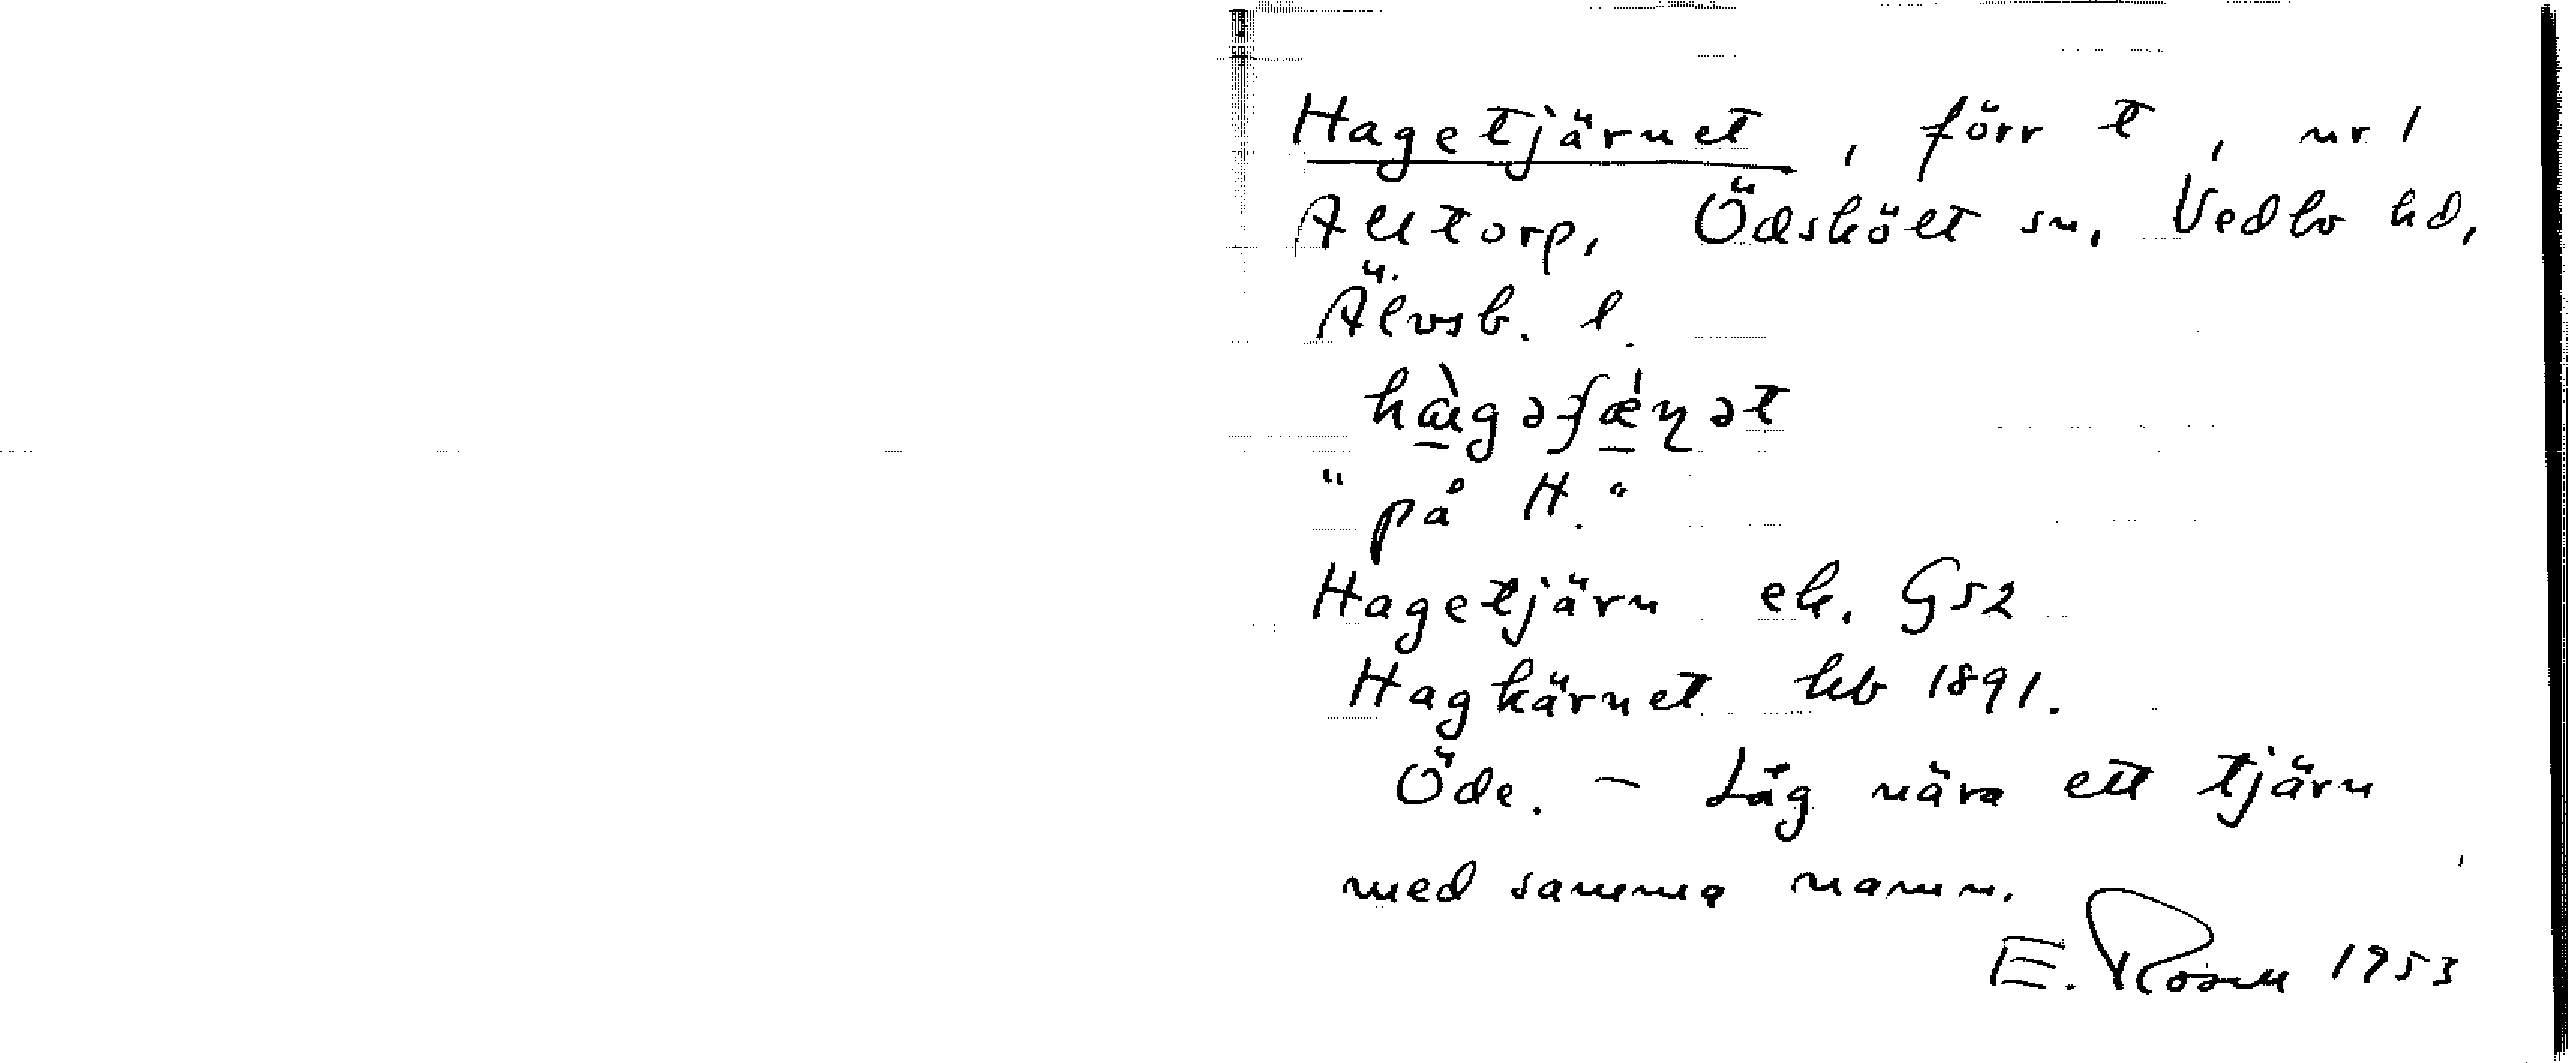 Hagetjärnet, förr t, nr 1
Alltorp, Ödskölt sn, Vedbo hd,
Älvsb. l.
"på H."
Hagetjärn ek. G52
Hagkärnet hb 1891.
Öde. - Låg nära ett tjärn
med samma namn.
E. Rosell 1953